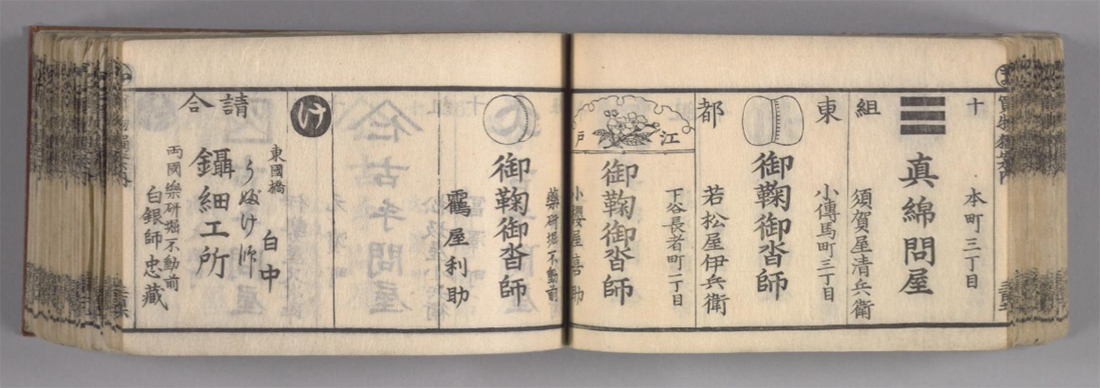 十
組
本町三丁目
真綿問屋
須賀屋清兵衛
東
都
小傳馬町三丁目
御鞠御沓師
若松屋伊兵衛
江戸
下谷長者町二丁目
御鞠御沓師
小櫻屋喜助
藥研堀不動前
御鞠御沓師
靍屋利助
け
請合
東國橋
白中
鑷細工所
両國藥研堀不動前
白銀師忠藏